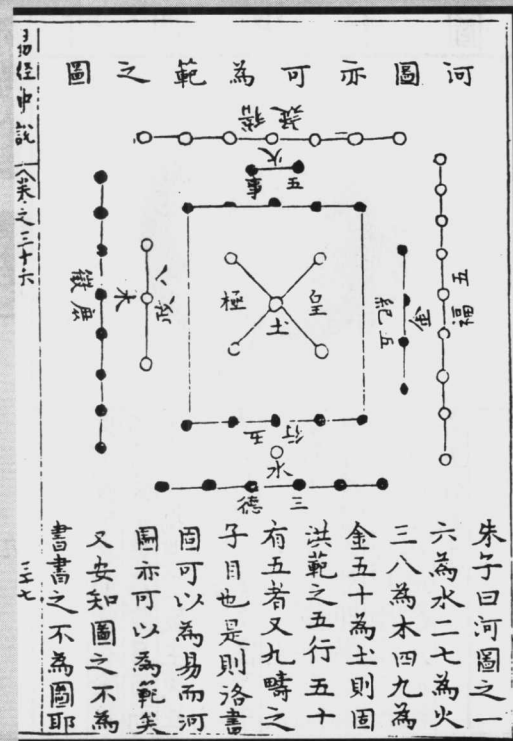 河圖亦可為範之圖
稽疑
火
五事
五福
金
五紀
皇極
土
八政
木
庶徵
五行
水
三德
朱子曰河圖之一
六為水二七為火
三八為木四九為
金五十為土則固
洪範之五行五十
有五者又九疇之
子目也是則洛書
固可以為易而河
圖亦可以為範矣
又安知圖之不為
書書之不為圖耶
易經中說
卷之三十六